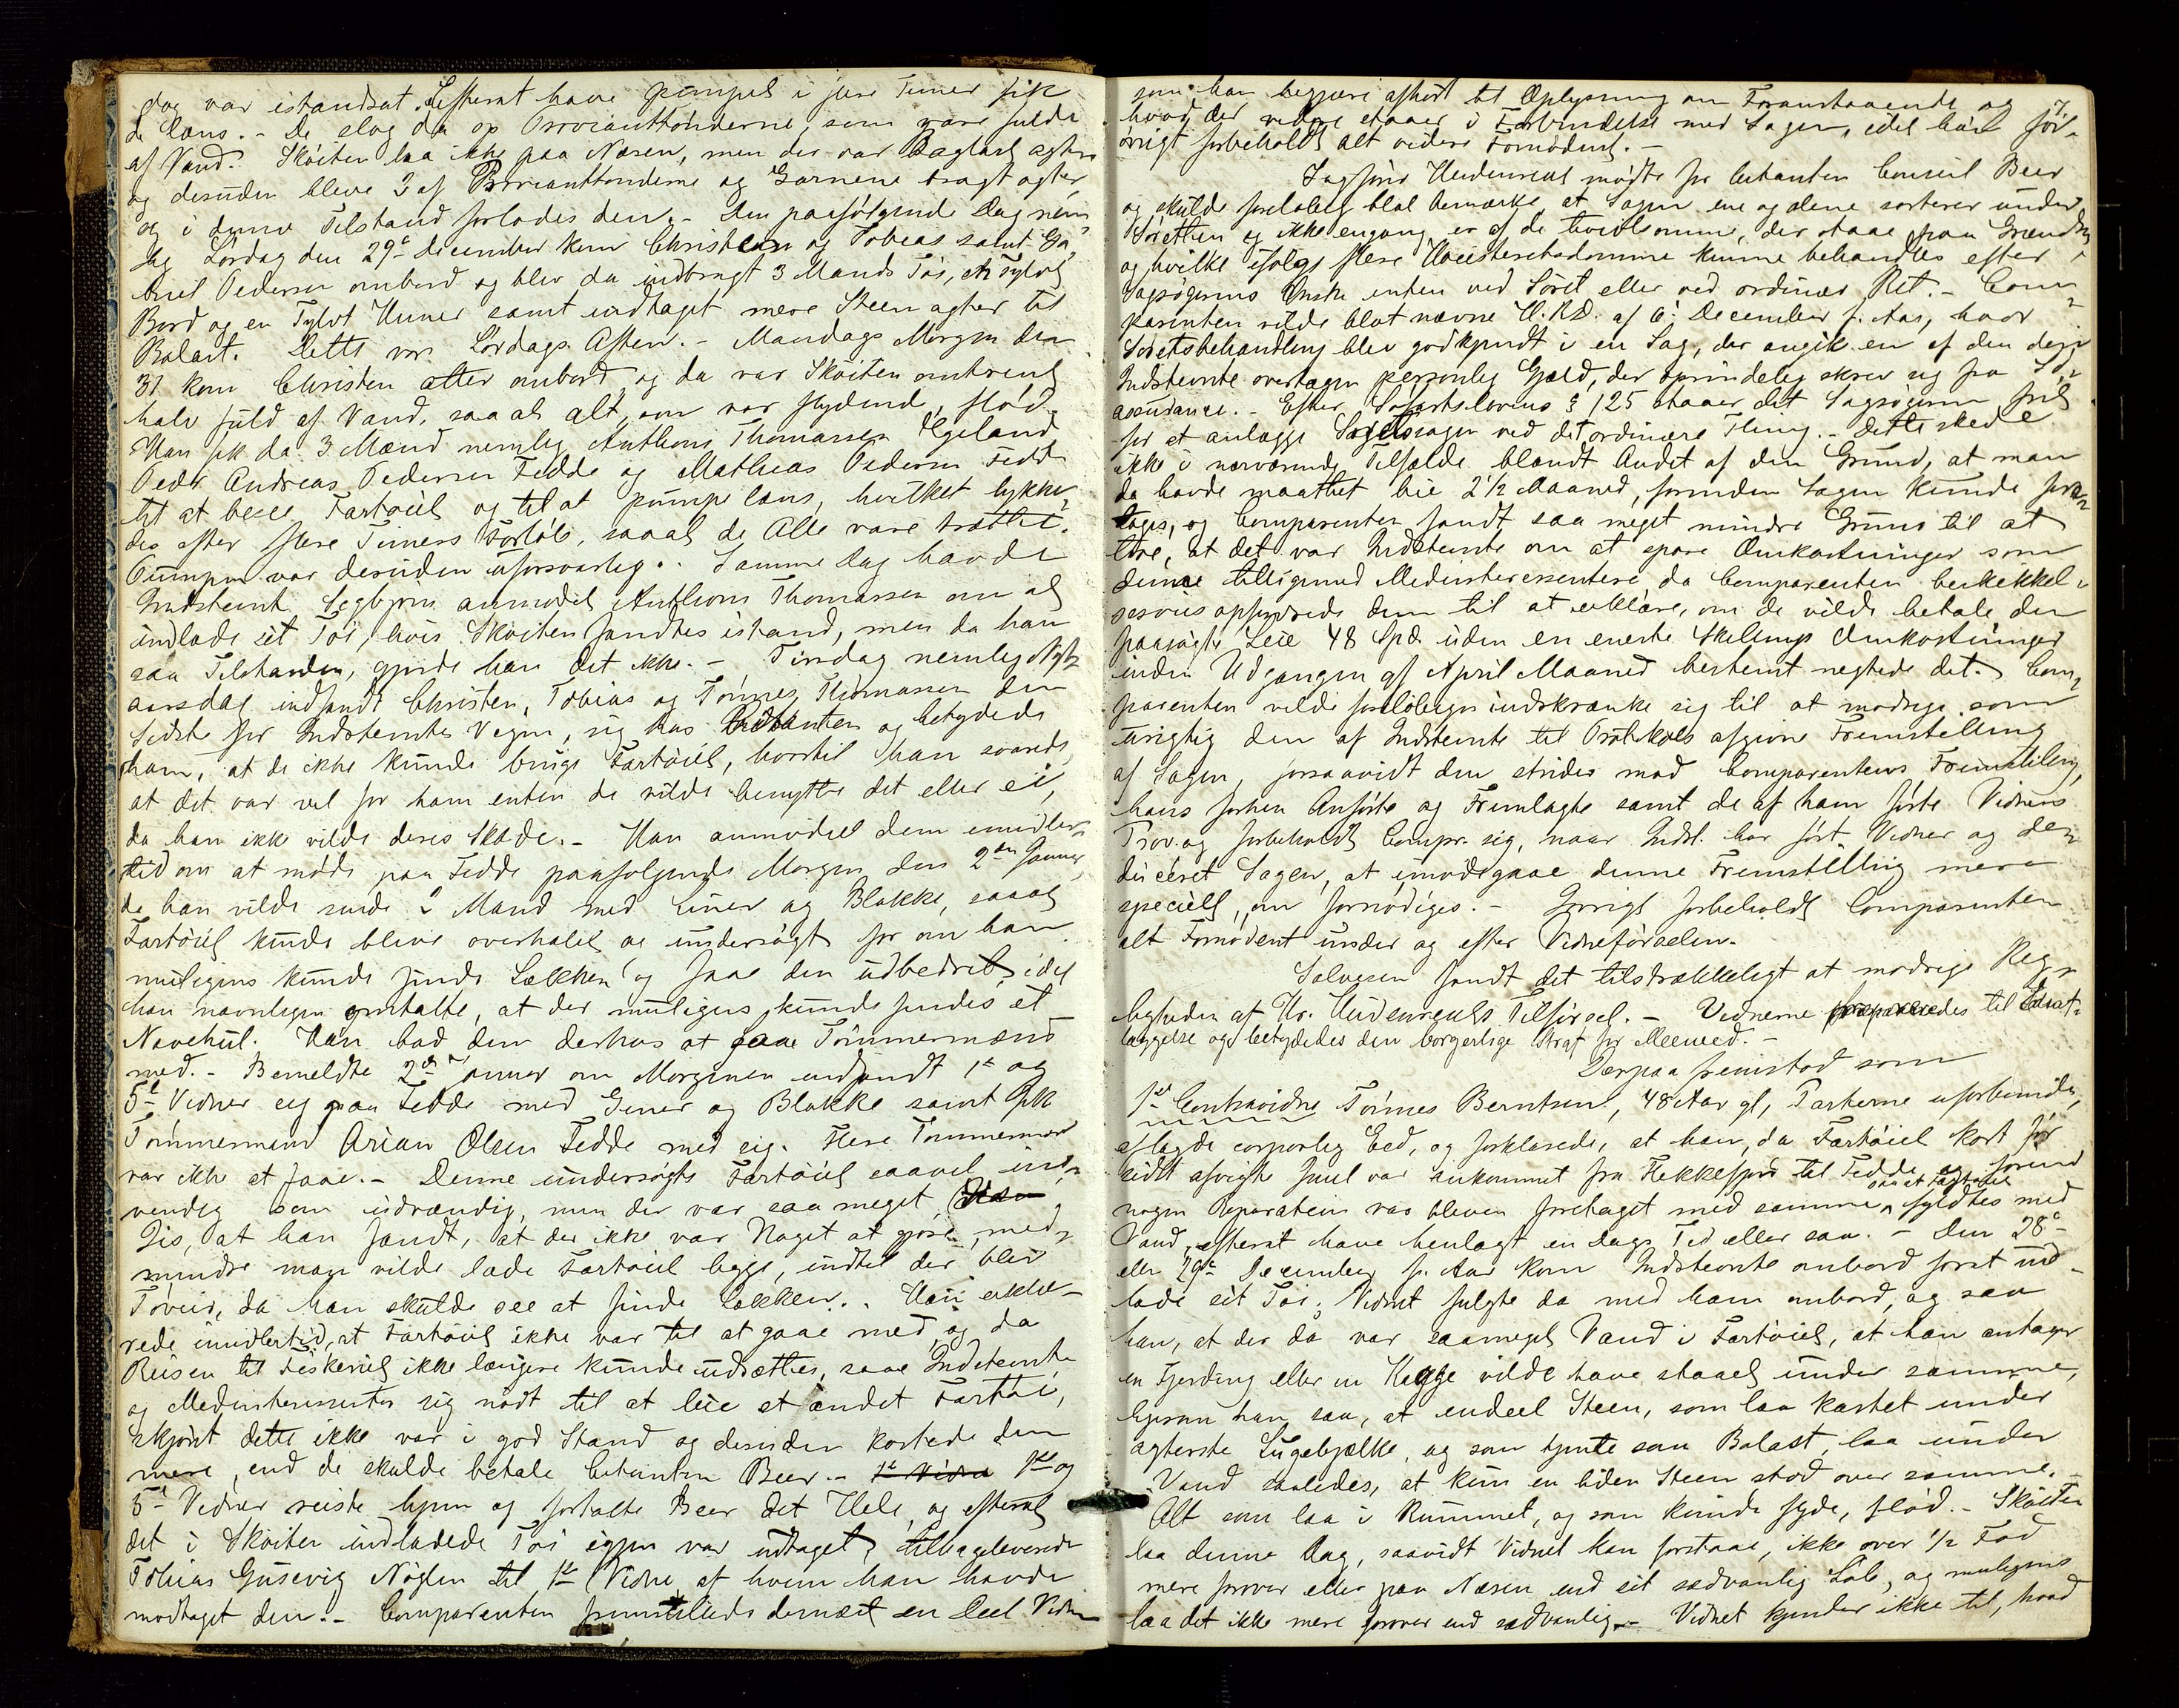 dog var istandsat. Efterat have pumpet i flere Timer fik
de læns. - De slog da op Provianttønderne, som vare fulde
af Vand. Skøiten laa ikke paa Næsen, men der var Baglast agter
og desuden bleve 2 af Proviantönderne og Garnene bragt agter
og i denne Tilstand forlodes den. - Den paafölgende Dag nem¬
lig Lördag den 29de December kom Christen og Tobias samt Ga¬
briel Pedersen ombord og blev da indbragt 3 Mands Töi, en Tylvt
Bord og en Tylvt Huner samt indtaget mere Steen agter til
Balast. Dette var Lördags Aften. - Mandags Morgen den
31 kom Christen atter ombord og da var Skøiten omtrent
halv fuld af Vand, saa at alt, som var flydende, flöd.
Han fik da 3 Mænd nemlig Anthoni Thomassen Egeland
Peder Andreas Pedersen Fedde og Mathias Pedersen Fedde
til at bese Fartöiet og til at pumpe læns, hvilket lykke¬
des efter flere Timers Forlöb, saa at de Alle vare trættet.
Pumpen var desuden uforsvarlig. Samme Dag havde
Indstevnte Segbjørn anmodet Anthoni Thomassen om at
indlade sit Töi, hvis Skøiten fandtes istand, men da han
saa Tilstanden, gjorde han det ikke. - Tirsdag nemlig Nyt¬
aarsdag indfandt Christen, Tobias og Tönnes Thomassen den
sidste for Indstevntes Vegne, sig hos Citanten og betydede
ham, at de ikke kunde bruge Fartöiet, hvortil han svarede,
at det var vel for ham enten de vilde benytte det eller ei,
da han ikke vilde deres Skade. - Han anmodede dem imidler¬
tid om at möde paa Fedde paafolgende Morgen den 2den Januar,
da han vilde sende 2 Mand med Giner og Blokke, saa at
Fartöiet kunde blive overhalet og undersögt for om han
muligens kunde finde Lækken og faae den udbedret, idet
han navnligen omtalte, at der muligens kunde findes et
Navehul. Han bad dem derhos at faae Tömmermænd
med. - Bemeldte 2den Januar om Morgenen indfandt 1ste og
5te Vidner sig paa Fedde med Giner og Blokke samt fik
Tömmermand Arian Olsen Fedde med sig. Flere Tömmermænd
var ikke at faae. - Denne undersögte Fartöiet saavel ind¬
vendig som udvændig, men der var saa meget
Iis, at han fandt, at der ikke var Noget at göre, med¬
mindre man vilde lade Fartöiet ligge, indtil der blev
Töveir, da Man skulde see at finde Lækken. - Han erklæ¬
rede imidlertid, at Fartöiet ikke var til at gaae med, og da
Reisen til Fiskeriet ikke længere kunde udsættes, saae Indstevnte
og Medinteressenter sig nödt til at leie et andet Fartöi,
skjönt dette ikke var i god Stand og desuden kostede dem
mere, end de skulde betale Citanten Beer. - 1ste Vidne 1ste og
5te Vidner reiste hjem og fortalte Beer det Hele, og efterat
det i Skøiten indladede Töi igjen var udtaget, tilbageleverede
Tobias Gusevig Nöglen til 1ste Vidne, af hvem han havde
modtaget den. - Comparenten fremstillede dernæst en Deel Vidner
7.
som han begjære afhört til Oplysning om Foranstaaende og
hvad der videre staaer i Forbindelse med Sagen, idet han for¬
övrigt forbeholdt alt videre Fornödent. -
Sagförer Heidenreich mödte for Citanten Consul Beer
og skulde foreløbig blot bemærke, at Sagen ene og alene sorterer under
Söretten og ikke engang er af de tvivlsomme, der staae paa Grændsen,
og hvilke ifölge flere Høiesteretsdomme kunne behandles efter
Sagsögerens Ønske enten ved Söret eller ved ordinær Ret. - Com¬
parenten vilde blot nævne H.R.D. af 6: December f. Aar, hvor
Söretsbehandling blev godkjendt i en Sag, der angik en af den deri
Indstevnte overtagen personlig Gjæld, der oprindelig skrev sig fra Sö¬
assurance. - Efter Söfartslovens § 125 staaer det Sagsögeren frit
for at anlægge Söretssagen ved det ordinære Thing. - Dette skede
ikke i nærværende Tilfælde blandt Andet af den Grund, at man
da havde maattet bie 2½ Maaned, forinden Sagen kunde fore¬
tages, og Comparenten fandt saa meget mindre Grund til at
troe, at det var Indstevnte om at spare Omkostninger som
denne tilligemed Medinteressentere, da Comparenten beskikkel¬
sesviis opfordrede dem til at erklære, om de vilde betale den
paasögte Leie 48 Spd. uden en eneste Skillings Omkostninger
inden Udgangen af April Maaned bestemt negtede det. Com¬
parenten vilde foreløbigen indskrænke sig til at modsige som
urigtig den af Indstevnte til Protokols afgivne Fremstilling
af Sagen, forsaavidt den strides mod Comparentens Fremstilling,
hans forhen Anförte og Fremlagte samt de af ham förte Vidners
Prov. og forbeholdt Compr. sig, naar Indst. har fört Vidner og de¬
duceret Sagen, at imödegaae denne Fremstilling mere
specielt, om fornödiges. - Iøvrigt forbeholdt Comparenten
alt Fornödent under og efter Vidneförselen.
Salvesen fandt det tilstrækkeligt at modsige Rig¬
tigheden af Hr. Heidenreichs Tilförsel. - Vidnerne præpareredes til Edsaf¬
læggelse og betydedes den borgerlige Straf for Meeneed. -
Derpaa fremstod som
1ste Contravidne Tönnes Berntsen, 48 Aar gl, Parterne uforbunden,
aflagde corporlig Eed, og forklarede, at han, da Fartöiet kort för
sidst afvigte Juul var ankommet fra Flekkefjord til Fedde og forend
nogen Reparation var bleven foretaget med samme, saa at Fartöiet fyldtes med
Vand, efterat have henlagt en Dags Tid eller saa. - Den 28de
eller 29de December f. Aar kom Indstevnte ombord forat ind¬
lade sit Töi; Vidnet fulgte da med ham ombord, og saa
han, at der da var saameget Vand i Fartöiet, at han antager
en Fjerding eller en Kagge vilde have staaet under samme,
ligesom han saa, at endeel Steen, som laa kastet under
agterste Lugebjelke, og som tjente som Balast, laa under
Vand saaledes, at kun en liden Steen stod over samme. -
Alt som laa i Rummet, og som kunde flyde, flöd. - Skøiten
laa denne Dag, saavidt Vidnet kan forstaae, ikke over ½ Fod
mere forover eller paa Næsen end sit sædvanlig Løb, og muligens
laa det ikke mere forover end sædvanlig. - Vidnet kjender ikke til, hvad